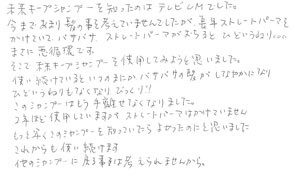 未来キープシャンプーを知ったのは テレビCMでした。
今まであまり髪の事を考えていませんでしたが、長年ストレートパーマを
かけていて、バサバサ ストレートパーマがおちると ひどいうねり…。
まさに悪循環です。
そこで 未来キープシャンプーを使用してみようと思いました。
使い続けていると いつのまにか バサバサの髪が しなやかになり
ひどいうねりもなくなり びっくり!!
このシャンプーは もう手離せなくなりました。
2年ほど使用していますが ストレートパーマはかけていません
もっと早くこのシャンプーを知っていたら よかったのにと思いました
これからも使い続けます
他のシャンプーに戻る事は考えられませんから。